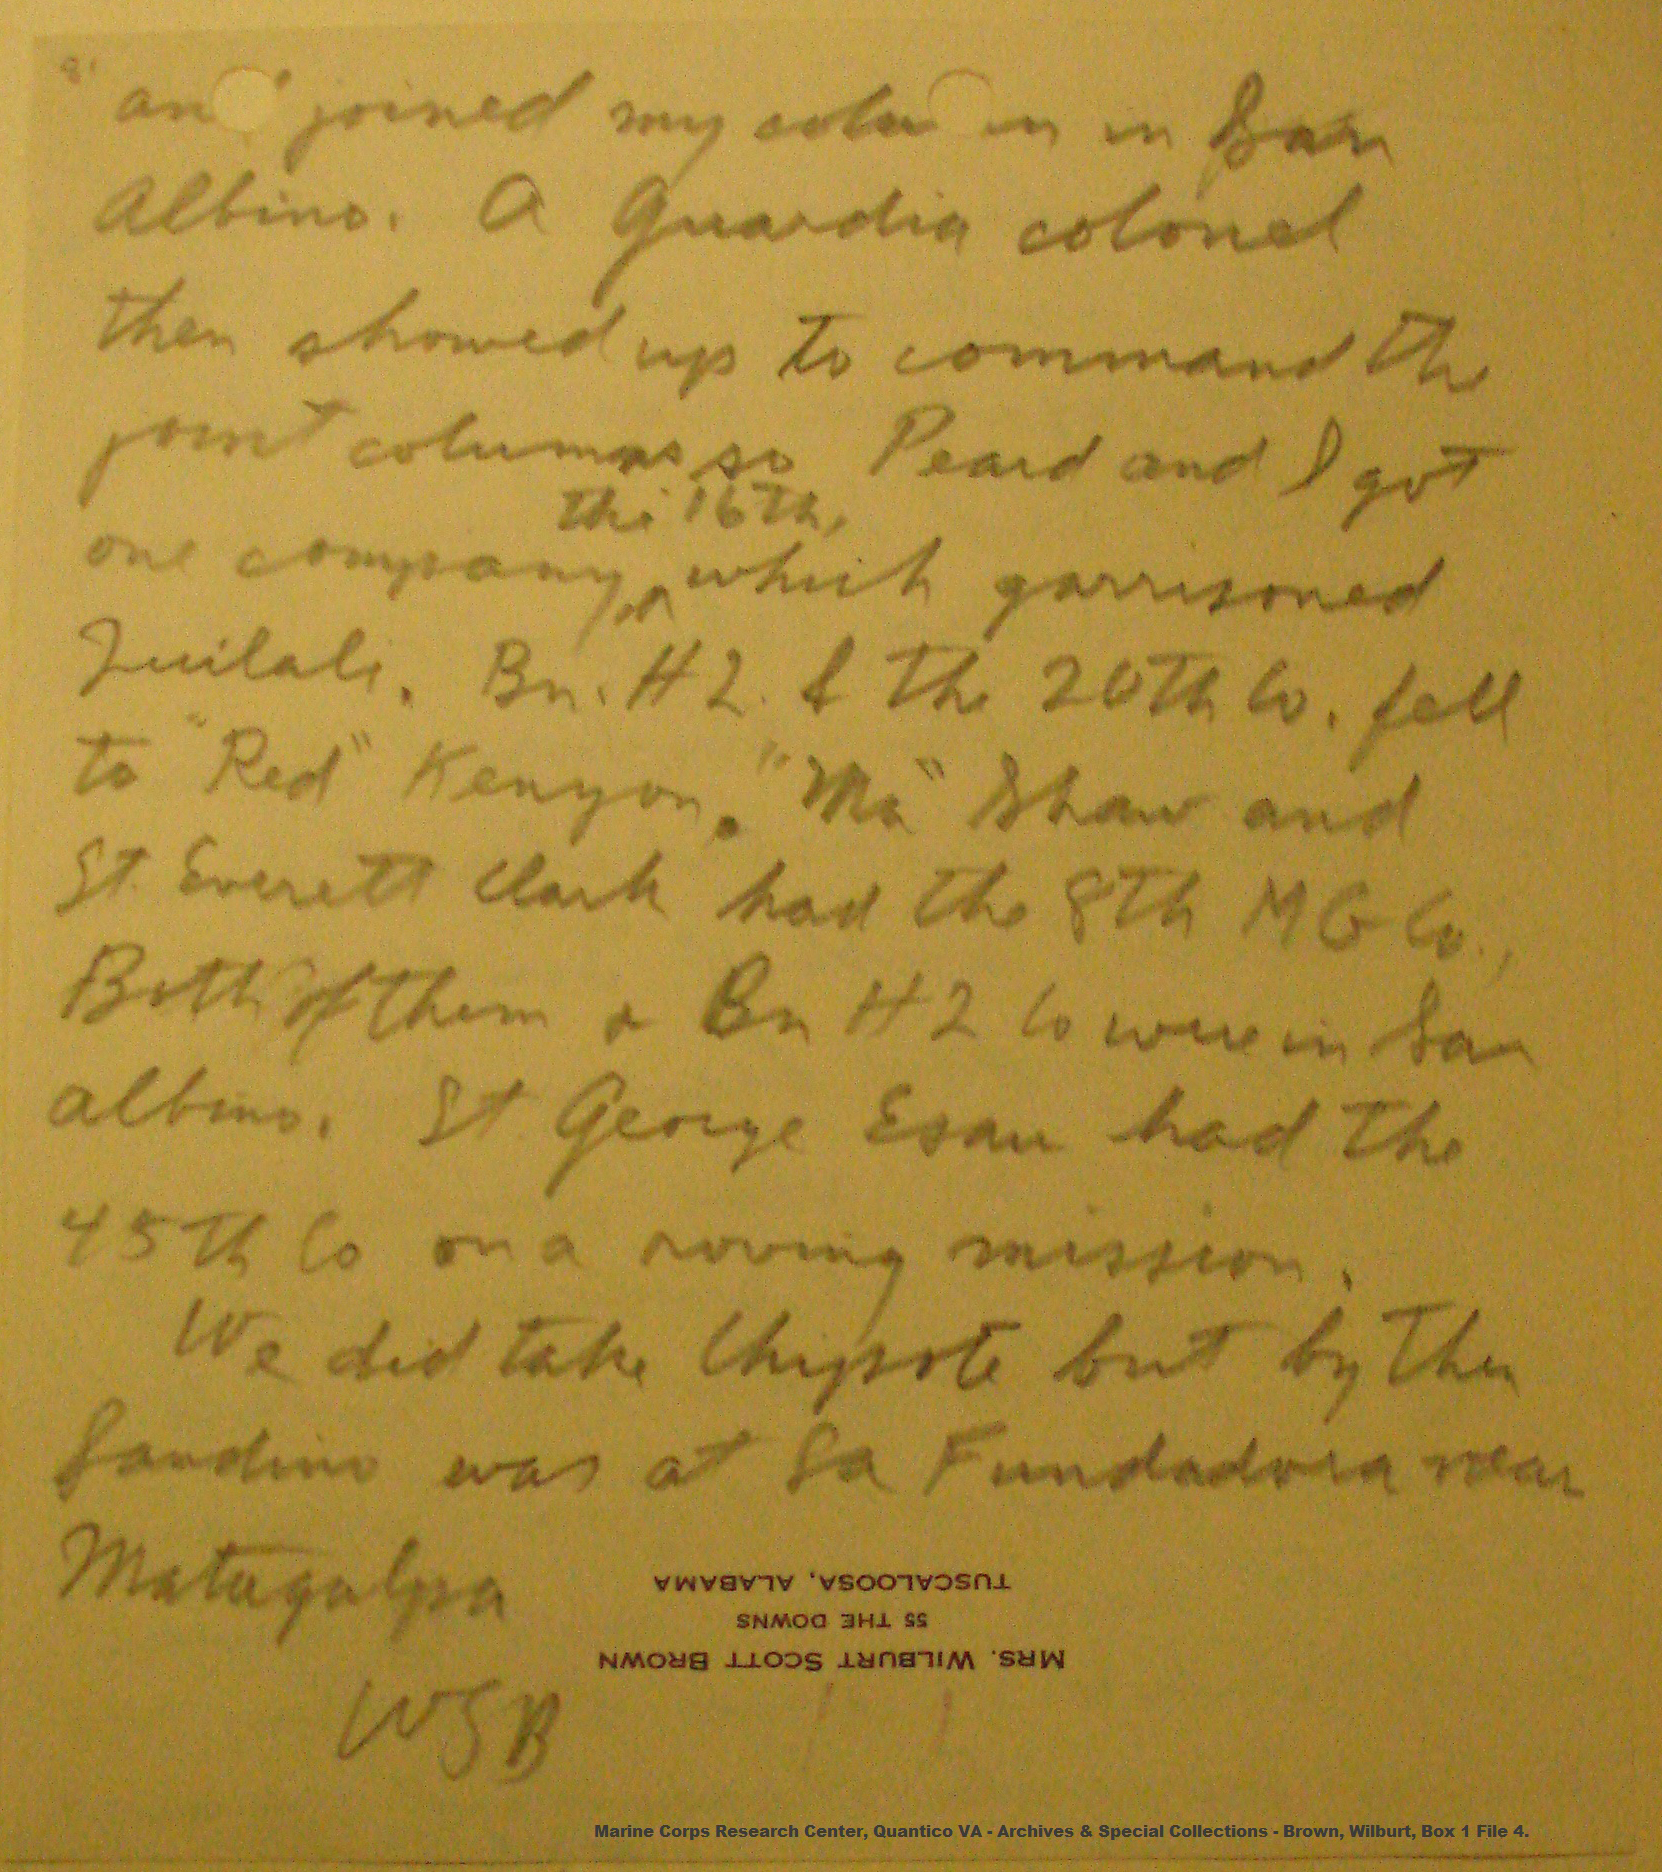 and joined my column in San
Albino. A Guardia colonel
then showed up to command the
joint columns so Peard and I got
the 16th,
one company, which garrisoned
Quilali. Bn. H2. & the 20th Co. fell
to "Red" Kenyon. "Ma" Shaw and
Lt. Everett Clark had the 8th MG Co.,
Both of them & Bn H2 Co were in San
Albino. Lt George Esau had the
45th Co on a roving mission.
We did take Chipote but by then
Sandino was at La Fundadora near
Matagalpa
MRS. WILBURT SCOTT BROWN
55 THE DOWNS
TUSCALOOSA, ALABAMA
WSB
Marine Corps Research Center, Quantico VA - Archives & Special Collections - Brown, Wilburt, Box 1 File 4.